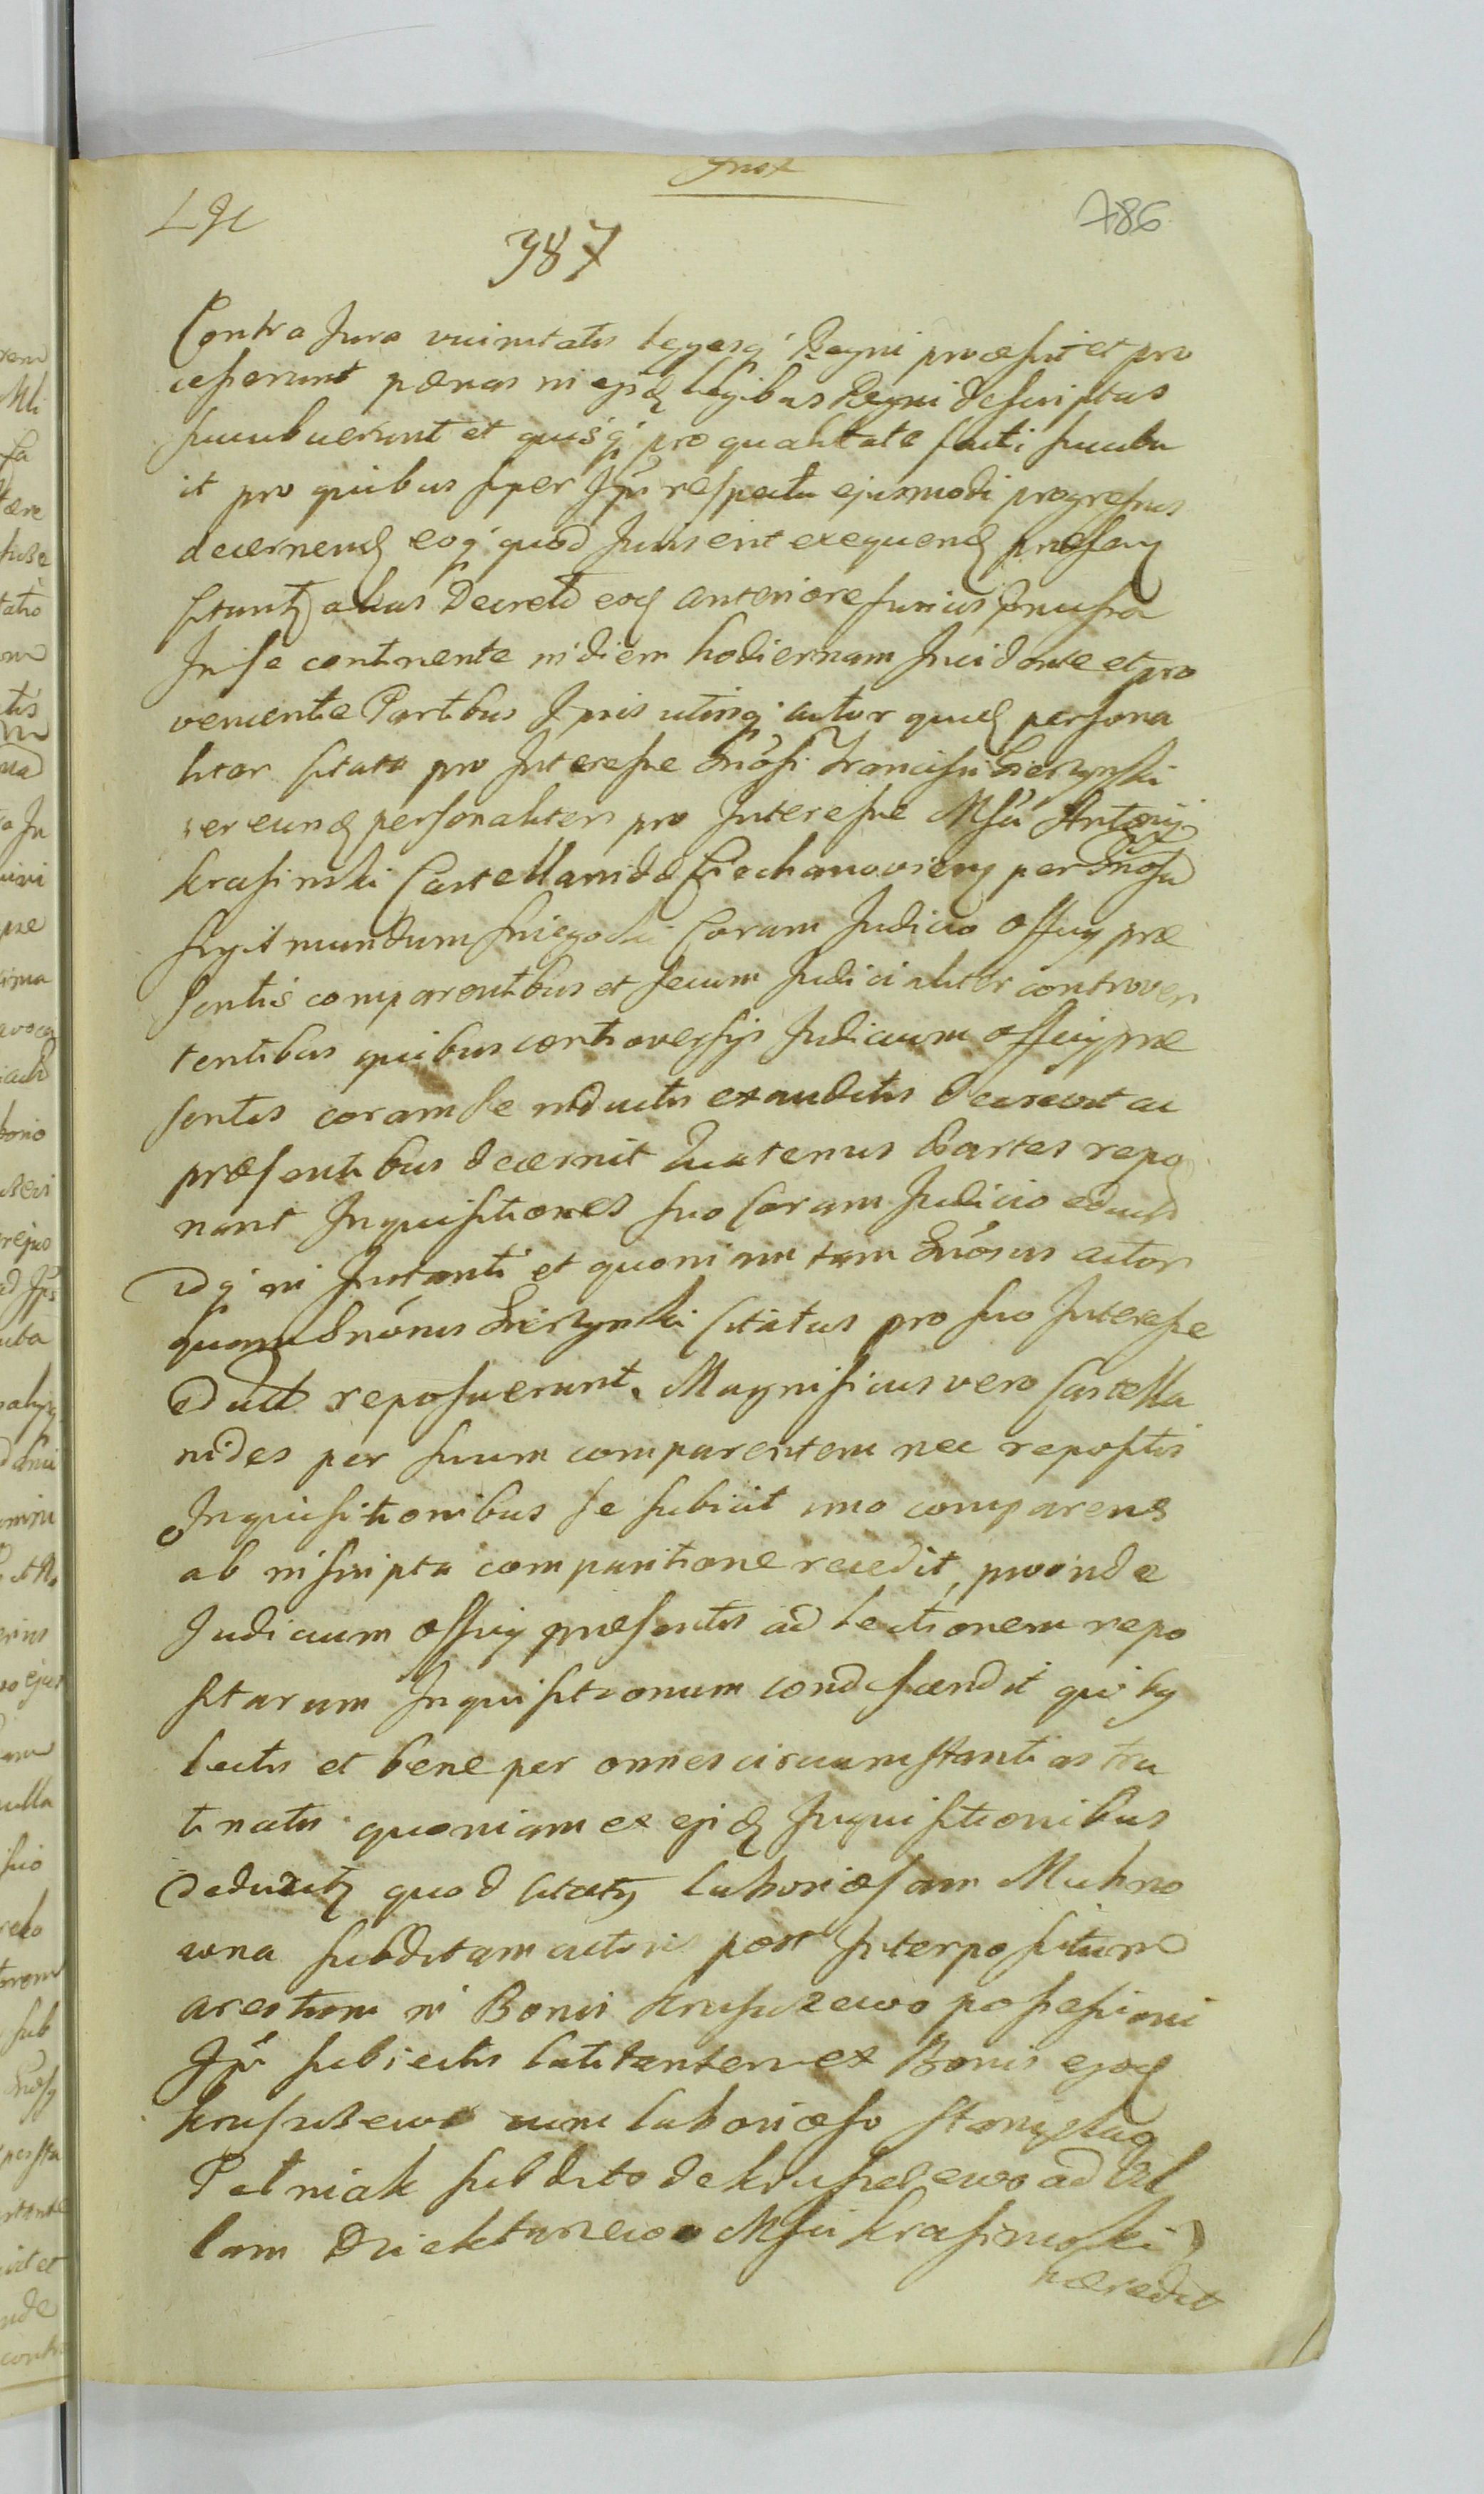 786
387
Contra Jura vicinitatis legesq' Regni processit et pro
cesserunt pænas in ejsd legibus Regni descriptas
succubuerunt et quisq' pro qualitate facti succubu
it pro quibus super Ipsis respectu ejusmodi progressus
decernend eoq' quod Juris erit exequend præsen
citant alias Decreto eod anteriore fusius
In se continente in diem hodiernam Incidente et pro
veniente Partibus Ipsis utrinq' actor quid persona
liter citata pro Interesse Gnosi Francisci Gierzynski
per eund personaliter pro Interesse Mfci Antonij
Krasinski Castellanidæ Ciechanovien per Gnosu
Sygismundum Coram Judicio officij præ
sentis comparentibus et secum Judicialiter controver
tentibus quibus controversijs Judicium officij præ
sentis coram se inductis exauditis decrevit ac
præsentibus decernit Quatenus Partes repo
nant Inquisitiones suo Coram Judicio educt
idq' in Instanti et quoniam tam Gnosus actor
quam Gnosus Gierzynski citatus pro suo Interesse
educt reposuerunt. Magnificus vero Castella
nides per suum comparentem nec repositis
Inquisitionibus se subicit imo comparens
ab inscripta comparitione recedit, proinde
Judicium officij præsentis ad lectionem repo
sitarum Inquisitionum condescendit quibg
lectis et bene per omnes circumstantias tru
tinatis quoniam ex ejsd Inquisitionibus
deducitz quod citatg laboriosam Muchno
wna subditam actoris post Interpositum
arestum in Bonis Krusszewo possessioni
Ipsi subiectis latitantem ex Bonis ejsd
Krusszewo cum laborioso Stanislao
Petniak subdito de Krusszewo ad Vil
lam Dziektarzewo Mfci Krasinski
hæredit